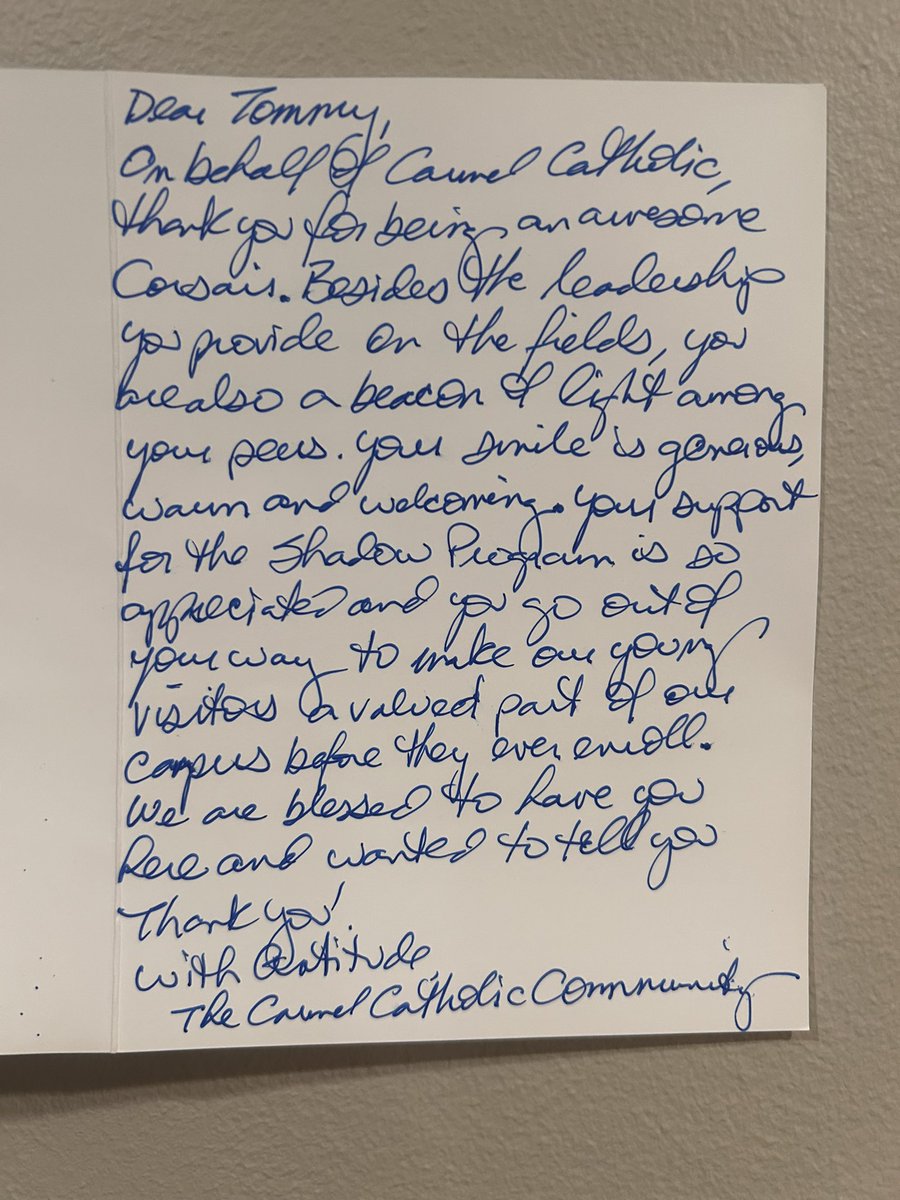 Dear Tommy,
On behalf of Carmel Catholic,
thank you for being an awesome
Corsair. Besides the leadership
you provide on the fields, you
are also a beacon of light among
your peers. Your smile is generous,
warm and welcoming. Your support
for the Shadow Program is so
appreciated and you go out of
your way to make our young
visitors a valued part of our
campus before they ever enroll.
We are blessed to have you
here and wanted to tell you
Thank you!
With Gratitude,
The Carmel Catholic Community